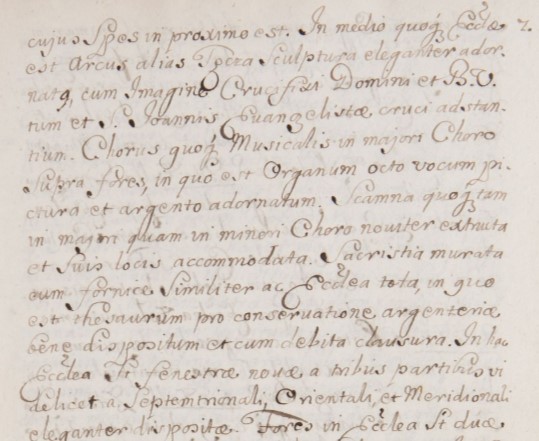 cujus Spes in proximo est. In medio quoq Eccłæ 7.
est Arcus alias Tęcza Sculptura eleganter ador-
nat9, cum Imagine Crucifixi Domini et B.V.
tum et S. Ioannis Evangelistæ cruci adstan-
tium. Chorus quoq Musicalis in majori Choro
supra fores, in quo est Organum octo vocum pi-
ctura et argento adornatum. Scamna quoq tam
in majori quam in minori Choro noviter extructa
et suis locis accommodata. Sacristia murata
cum fornice similiter ac Ecclea tota, in qua
est thesaurum pro conservatione argenteriæ
bene dispositum et cum debita clausura. In hac
Ecclea St fenestræ novæ a tribus partibus vi
delicet a Septemtrionali, Orientali, et Meridionali
eleganter dispositæ. Fores in Ecclea St duæ